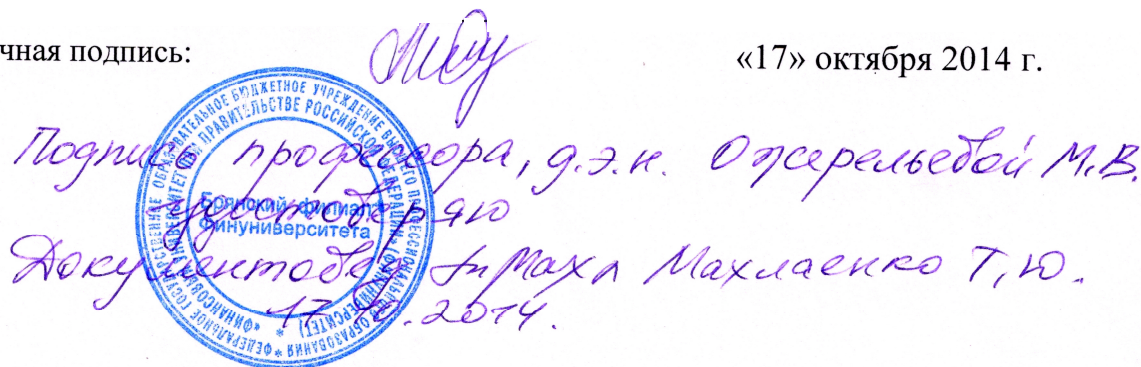 чная подпись: «17» октября 2014 г.
Подпись профессора, д.э.н. Ожерельевой М.В.
удостоверяю
Документовед Махлаенко Т.Ю.
17.10.2014.
ФЕДЕРАЛЬНОЕ ГОСУДАРСТВЕННОЕ ОБРАЗОВАТЕЛЬНОЕ БЮДЖЕТНОЕ УЧРЕЖДЕНИЕ ВЫСШЕГО ПРОФЕССИОНАЛЬНОГО ОБРАЗОВАНИЯ
«ФИНАНСОВЫЙ УНИВЕРСИТЕТ ПРИ ПРАВИТЕЛЬСТВЕ РОССИЙСКОЙ ФЕДЕРАЦИИ» (ФИНУНИВЕРСИТЕТ)
Брянский филиал
Финуниверситета